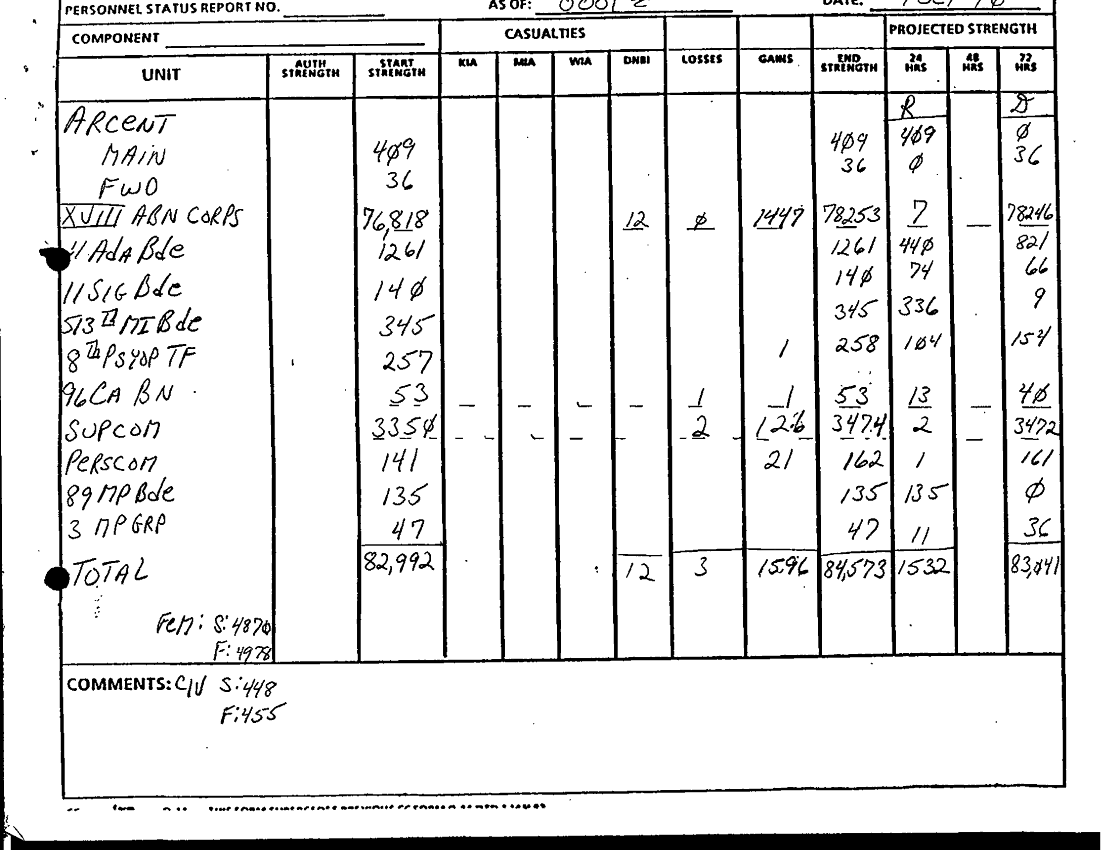 PERSONNEL STATUS REPORT NO. AS OF: 0001 Z DATE:
COMPONENT CASUALTIES PROJECTED STRENGTH
UNIT AUTH STRENGTH START STRENGTH KIA MIA WIA DNBI LOSSES GAINS END STRENGTH 24 HRS 48 HRS 72 HRS
R D
ARCENT
MAIN 4Ø9 4Ø9 4Ø9 Ø
FWD 36 36 Ø 36
XVIII ABN CORPS 76,818 12 Ø 1447 78253 7 — 78246
11 ADA Bde 1261 1261 44Ø 821
11 SIG Bde 14Ø 14Ø 74 66
513TH MI Bde 345 345 336 9
8TH PSYOP TF 257 1 258 1Ø4 154
96 CA BN 53 — — — — 1 1 53 13 — 4Ø
SUPCOM 335Ø - - - - 2 126 3474 2 — 3472
PERSCOM 141 21 162 1 161
89 MP Bde 135 135 135 Ø
3 MP GRP 47 47 11 36
TOTAL 82,992 12 3 1596 84,573 1532 83,Ø41
Fem: S: 487Ø
F: 4978
COMMENTS: CIV S: 448
F: 455